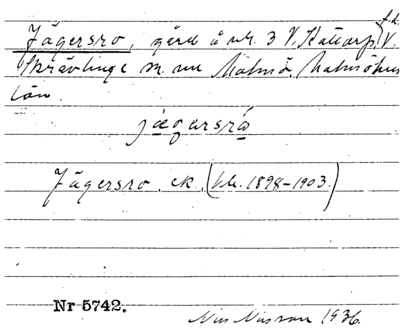 f.d.
Jägersro, gård å nr. 3 V. Kattarp, V.
Skrävlinge sn. nu Malmö, Malmöhus
län.
jægarsrå
Jägersro. ek. (bl. 1898–1903.)
Nr 5742.
Nils Nilsson 1936.